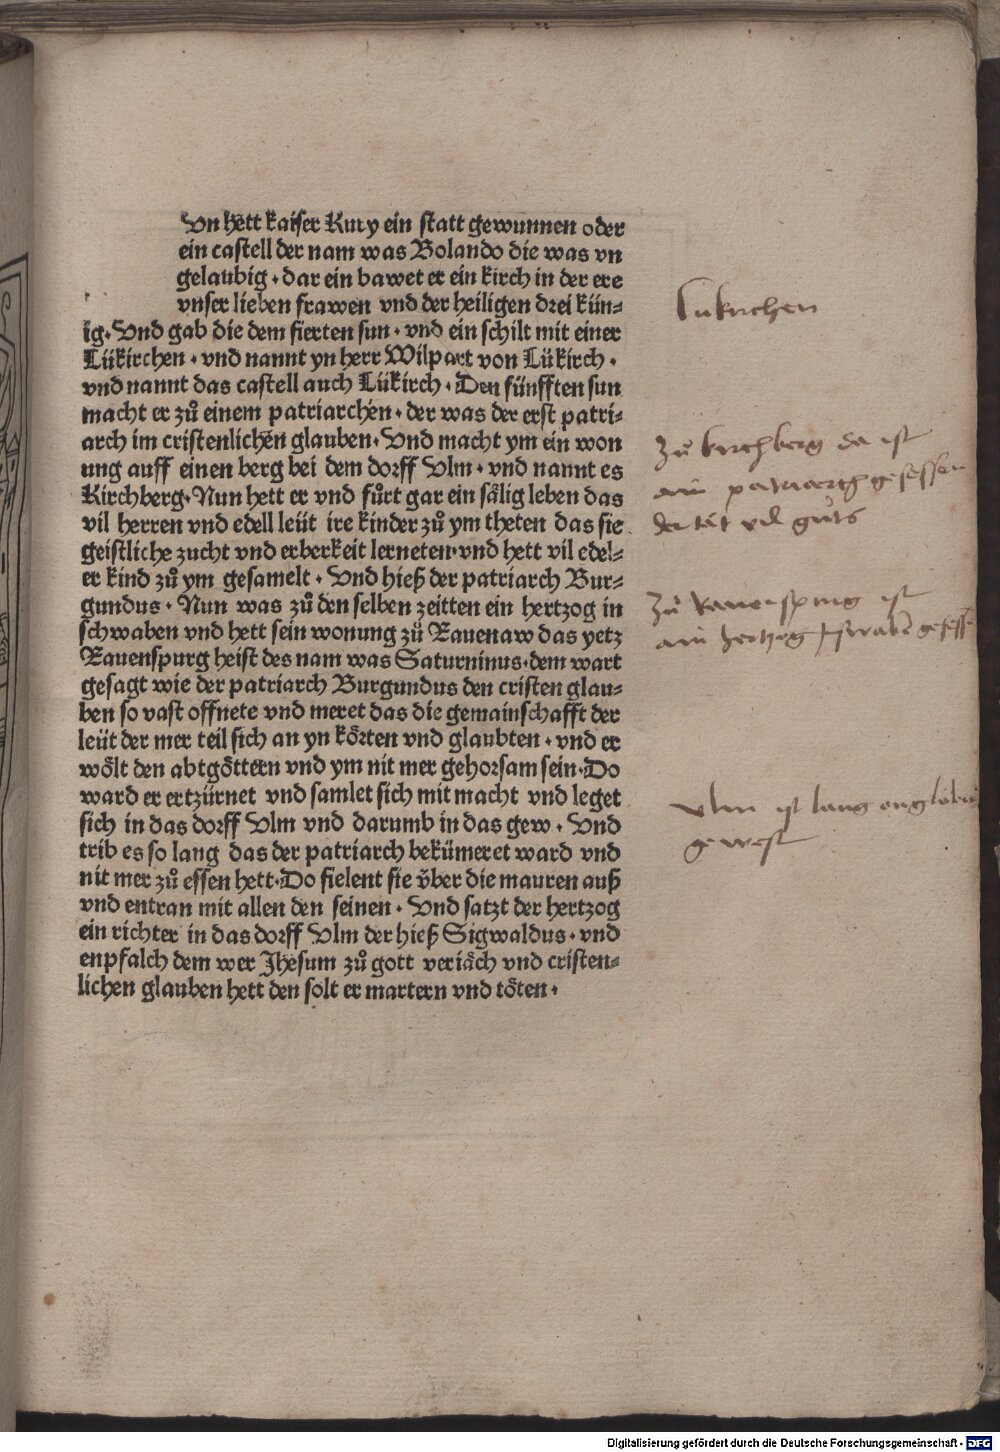 Un hett kaiser Kury ein statt gewunnen oder
ein castell der nam was Bolando die was vn
gelaubig · dar ein bawet er ein kirch in der ere
vnser lieben frawen vnd der heiligen drei kün⸗
ig · Vnd gab die dem fierten sun · vnd ein schilt mit einer
Lükirchen · vnd nannt yn herr Wilpart von Lükirch ·
vnd nannt das castell auch Lükirch · Den fünfften sun
macht er zů einem patriarchen · der was der erst patri⸗
arch im cristenlichen glauben · Vnd macht ym ein won
ung auff einen berg bei dem dorff Vlm · vnd nannt es
Kirchberg · Nun hett er vnd fůrt gar ein sålig leben das
vil herren vnd edell leüt ire kinder zů ym theten das sie
geistliche zucht vnd erberkeit lerneten · vnd hett vil edel⸗
er kind zů ym gesamelt · Vnd hieß der patriarch Bur⸗
gundus · Nun was zů den selben zeitten ein hertzog in
schwaben vnd hett sein wonung zů Rauenaw das yetz
Rauenspurg heist des nam was Saturninus · dem wart
gesagt wie der patriarch Burgundus den cristen glau⸗
ben so vast offnete vnd meret das die gemainschafft der
leüt der mer teil sich an yn körten vnd glaubten · vnd er
wölt den abtgöttern vnd ym nit mer gehorsam sein · Do
ward er ertzürnet vnd samlet sich mit macht vnd leget
sich in das dorff Vlm vnd darumb in das gew · Vnd
trib es so lang das der patriarch bekümeret ward vnd
nit mer zů essen hett · Do fielent sie v̈ber die mauren auß
vnd entran mit allen den seinen · Vnd satzt der hertzog
ein richter in das dorff Vlm der hieß Sigwaldus · vnd
enpfalch dem wer Jhesum zů gott veriäch vnd cristen⸗
lichen glauben hett den solt er martern vnd töten ·
lukirchen
Zů kirchberg da ist
ain patriarch gesessen
der tät vil guts
Zů Rauenspurg ist
ain hertzog
vlm ist lang
gewest
Digitalisierung gefördert durch die Deutsche Forschungsgemeinschaft - DFG